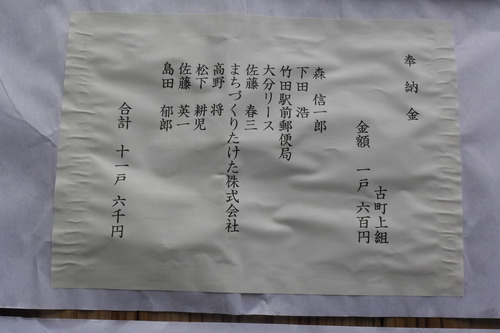 奉納金
古町上組
金額 一戸 六百円
森 信一郎
下田 浩
竹田駅前郵便局
大分リース
佐藤 春三
まちづくりたけた株式会社
高野 将
松下 耕児
佐藤 英一
島田 郁郎
合計 十一戸 六千円